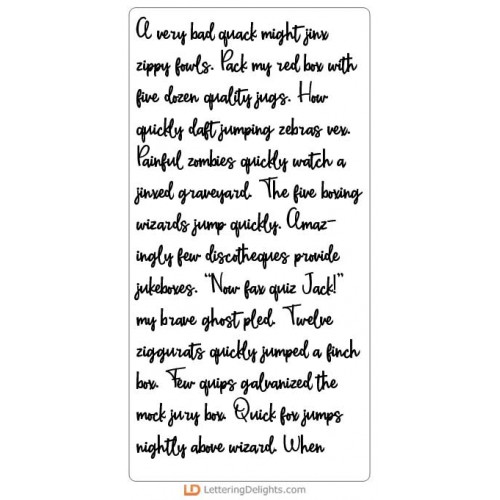 A very bad quack might jinx
zippy fowls. Pack my red box with
five dozen quality jugs. How
quickly daft jumping zebras vex.
Painful zombies quickly watch a
jinxed graveyard. The five boxing
wizards jump quickly. Amaz-
ingly few discotheques provide
jukeboxes. "Now fax quiz Jack!"
my brave ghost pled. Twelve
ziggurats quickly jumped a finch
box. Few quips galvanized the
mock jury box. Quick fox jumps
nightly above wizard. When
LD LetteringDelights.com